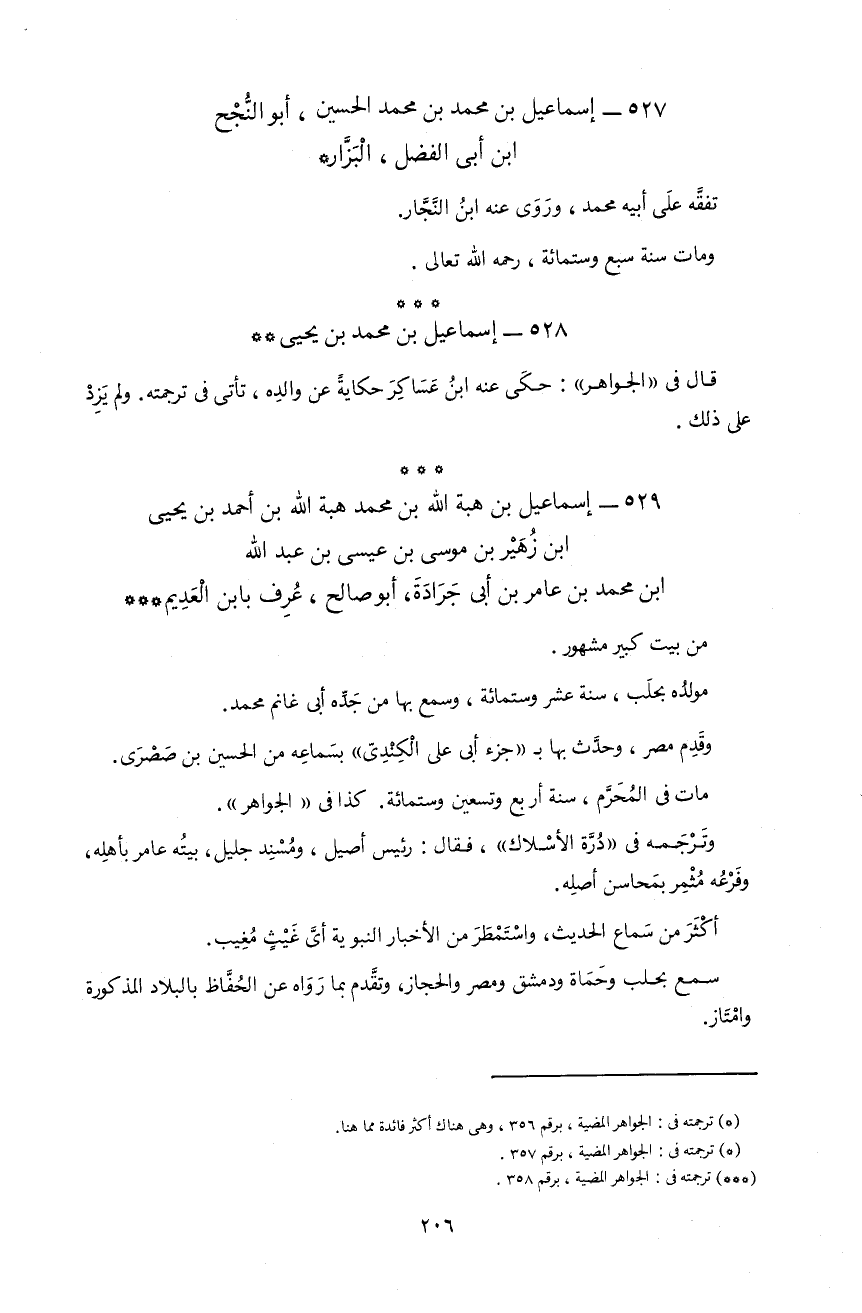 ٥٢٧ ــ إسماعيل بن محمد بن محمد الحسين ، أبو النُّجْح
ابن أبى الفضل ، الْبَزَّار*
تفقَّه علَى أبيه محمد ، ورَوَى عنه ابنُ النَّجَّار.
ومات سنة سبع وستمائة ، رحمه الله تعالى .
* * *
٥٢٨ ــ إسماعيل بن محمد بن يحيى**
قال فى «الجواهر» : حكَى عنه ابنُ عَسَاكِرَ حكايةً عن والدِه ، تأتى فى ترجمته. ولم يَزِدْ
على ذلك .
* * *
٥٢٩ ــ إسماعيل بن هبة الله بن محمد هبة الله بن أحمد بن يحيى
ابن زُهَيْر بن موسى بن عيسى بن عبد الله
ابن محمد بن عامر بن أبى جَرَادَةَ، أبو صالح ، عُرِف بابن الْعَدِيم***
من بيت كبير مشهور .
مولدُه بحلَب ، سنة عشر وستمائة ، وسمع بها من جَدِّه أبى غانم محمد.
وقَدِم مصر ، وحدَّث بها بـ «جزء أبى على الْكِنْدِىّ» بسَماعِه من الحسين بن صَصْرَى.
مات فى المُحَرَّم ، سنة أربع وتسعين وستمائة. كذا فى « الجواهر» .
وتَرْجَمه فى «دُرَّة الأسْلاك» ، فقال : رئيس أصيل ، ومُسْنِد جليل، بيتُه عامر بأهلِه،
وفَرْعُه مُثْمِر بمَحاسن أصلِه.
أكْثَرَ من سَماع الحديث، واسْتَمْطَرَ من الأخبار النبوية أىَّ غَيْثٍ مُغِيب.
سمع بحلب وحَمَاة ودمشق ومصر والحجاز، وتقَّدم بما رَوَاه عن الحُفَّاظ بالبلاد المذكورة
وامْتَاز.
(*) ترجمته فى : الجواهر المضية ، برقم ٣٥٦ ، وهى هناك أكثر فائدة مما هنا.
(*) ترجمته فى : الجواهر المضية ، برقم ٣٥٧ .
(***) ترجمته فى : الجواهر المضية ، برقم ٣٥٨ .
٢٠٦